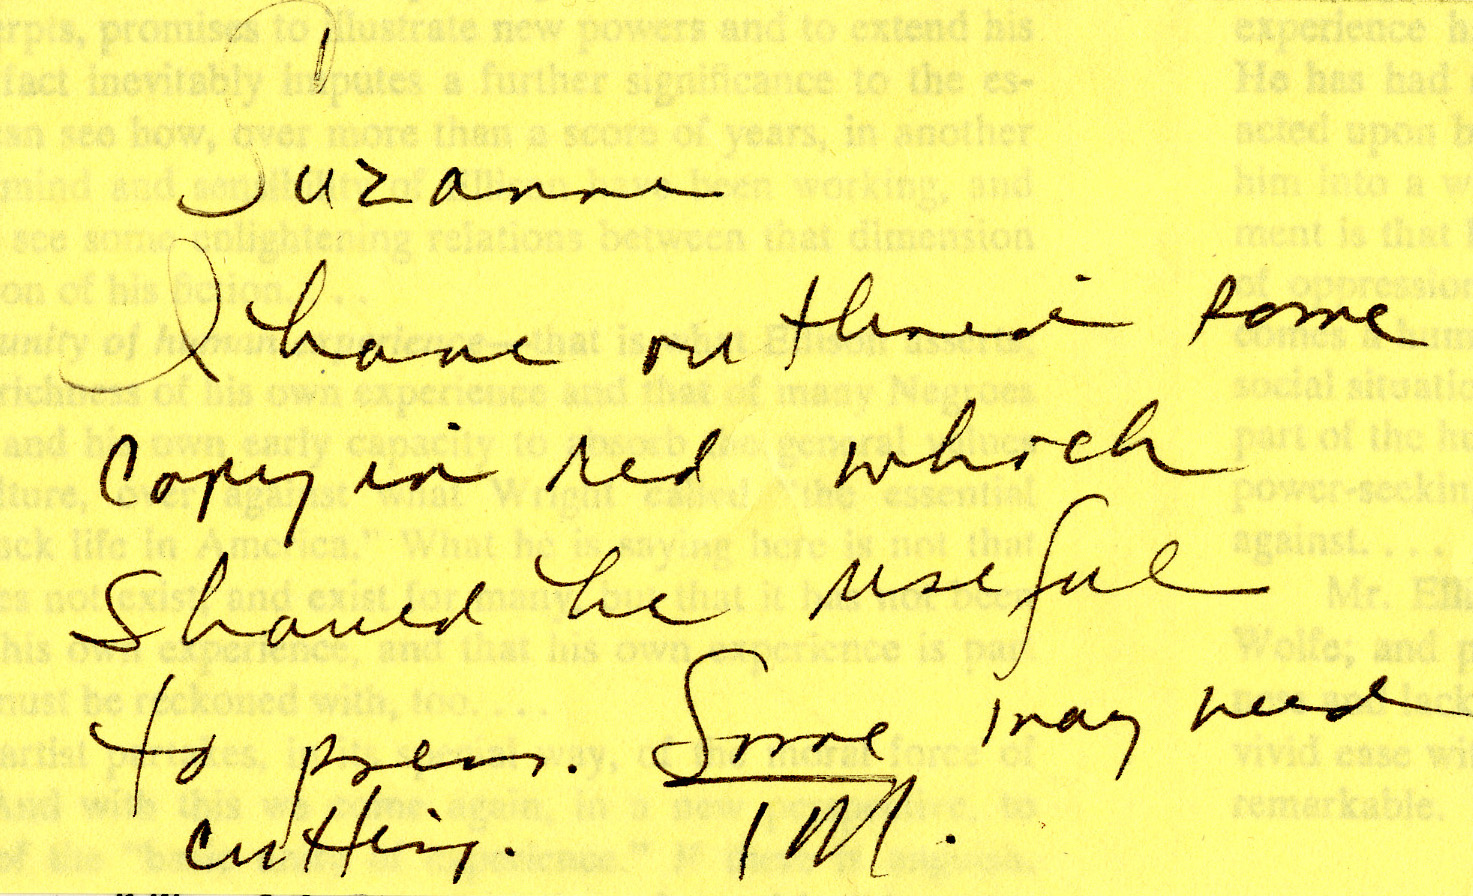 Suzanne
I have outlined some
copy in red which
should be useful
to press. Some may need
cutting. IM.
erpts, promises to illustrate new powers and to extend his
fact inevitably imputes a further significance to the es-
can see how, over more than a score of years, in another
mind and sensibility of Ellison have been working, and
see some enlightening relations between that dimension
on of his fiction. . . .
unity of human experience—that is what Ellison asserts,
richness of his own experience and that of many Negroes
and his own early capacity to absorb the general values
lture, over against what Wright called "the essential
ack life in America." What he is saying here is not that
es not exist, and exist for many, but that it has not been
his own experience, and that his own experience is par
must be reckoned with, too. . . .
artist partakes, in its special way, of the moral force of
And with this we come again, in a new perspective, to
of the "basic unity of experience." If there is anguish,
experience h
He has had
acted upon b
him into a w
ment is that
of oppression
comes a hum
social situatio
part of the hu
power-seekin
against. . . .
Mr. Elli
Wolfe; and p
and lack
vivid ease wi
remarkable.